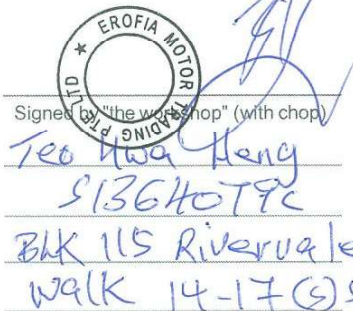 EROFIA MOTOR TRADING PTE LTD
Signed by "the workshop" (with chop)
Teo Hwa Heng
BLK 115 Rivervale
Walk 14-17 (S)